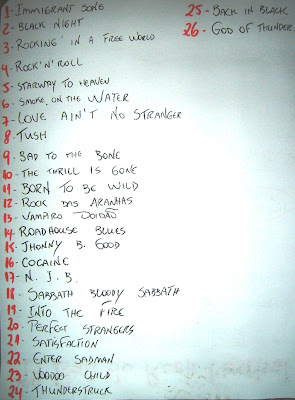 1- IMMIGRANT SONG
2- BLACK NIGHT
3- ROCKING' IN A FREE WORLD
4- ROCK'N'ROLL
5- STARWAY TO HEAVEN
6- SMOKE ON THE WATER
7- LOVE AIN'T NO STRANGER
8- TUSH
9- BAD TO THE BONE
10- THE THRILL IS GONE
11- BORN TO BE WILD
12- ROCK DAS ARANHAS
13- VAMPIRO DOIDÃO
14- ROADHOUSE BLUES
15- JHONNY B. GOOD
16- COCAINE
17- N. I. B.
18- SABBATH BLOODY SABBATH
19- INTO THE FIRE
20- PERFECT STRANGERS
21- SATISFACTION
22- ENTER SADMAN
23- VOODOO CHILD
24- THUNDERSTRUCK
25- BACK IN BLACK
26- GOD OF THUNDER